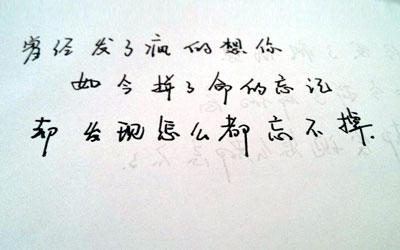 曾经发了疯的想你
如今拼了命的忘记
却发现怎么都忘不掉.